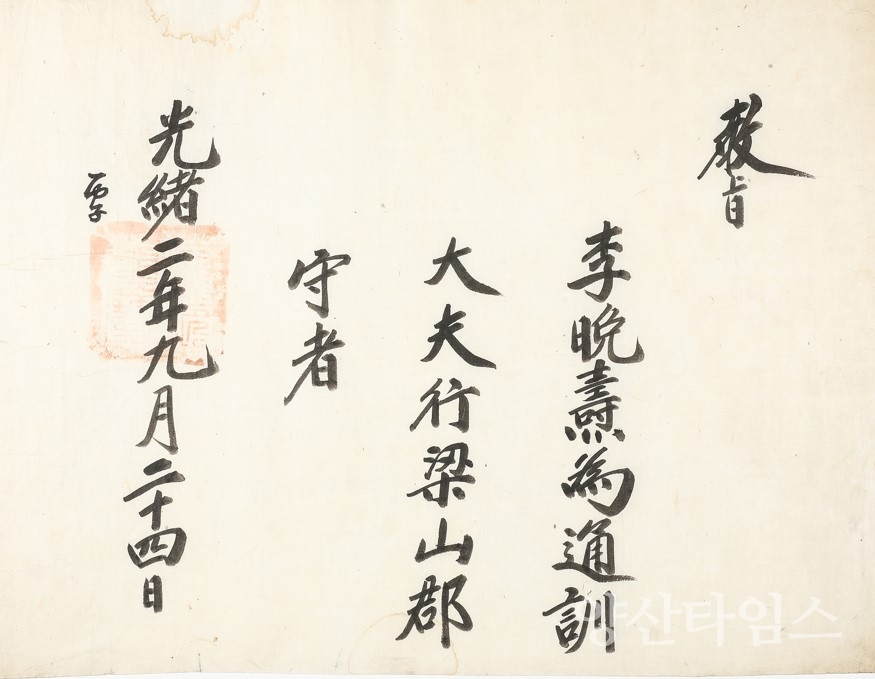 敎旨
李晩燾為通訓
大夫行梁山郡
守者
光緒二年九月二十四日
양산타임스